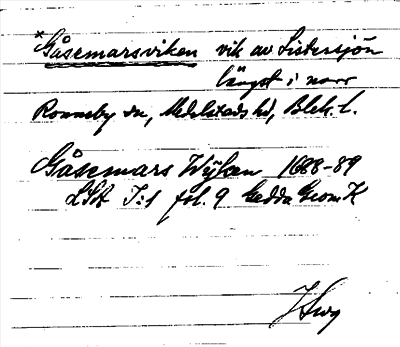 *Gåsemarsviken vik av Listersjön
längst i norr
Ronneby sn, Medelstads hd, Blek. l.
Gåsemars Wijken 1688-89
LSA I:1 fol. 9 Gedda Geom K